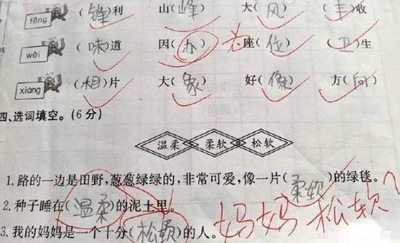 fēng (锋)利 山(峰) 大(风) (丰)收
wèi (味)道 因(为) 座(位) (卫)生
xiàng (相)片 大(象) 好(像) 方(向)
四、选词填空。(6分)
温柔 柔软 松软
1.路的一边是田野,葱葱绿绿的,非常可爱,像一片(柔软)的绿毯。
2.种子睡在(温柔)的泥土里。
3.我的妈妈是一个十分(松软)的人。 妈妈松软?